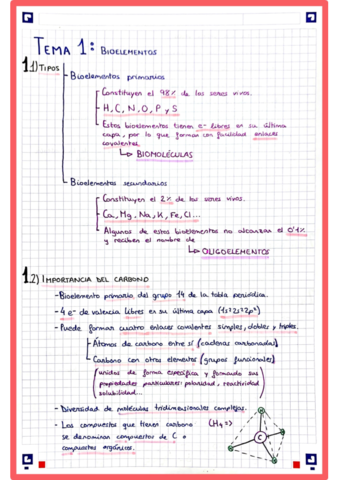 TEMA 1: BIOELEMENTOS
1.1) TIPOS
Bioelementos primarios
Constituyen el 98% de los seres vivos.
H, C, N, O, P y S
Estos bioelementos tienen e- libres en su última
capa, por lo que forman con facilidad enlaces
covalentes.
↳ BIOMOLÉCULAS
Bioelementos secundarios
Constituyen el 2% de los seres vivos.
Ca, Mg, Na, K, Fe, Cl...
Algunos de estos bioelementos no alcanzan el 0'1%
y reciben el nombre de
↳ OLIGOELEMENTOS
1.2) IMPORTANCIA DEL CARBONO
- Bioelemento primario del grupo 14 de la tabla periódica.
- 4 e- de valencia libres en su última capa (1s²2s²2p²)
- Puede formar cuatro enlaces covalentes simples, dobles y triples.
Átomos de carbono entre sí (cadenas carbonadas)
Carbono con otros elementos (grupos funcionales)
(unidos de forma específica y formando sus
propiedades particulares: polaridad, reactividad
solubilidad...
- Diversidad de moléculas tridimensionales complejas.
- Los compuestos que tienen carbono
se denominan compuestos de C o
compuestos orgánicos.
C